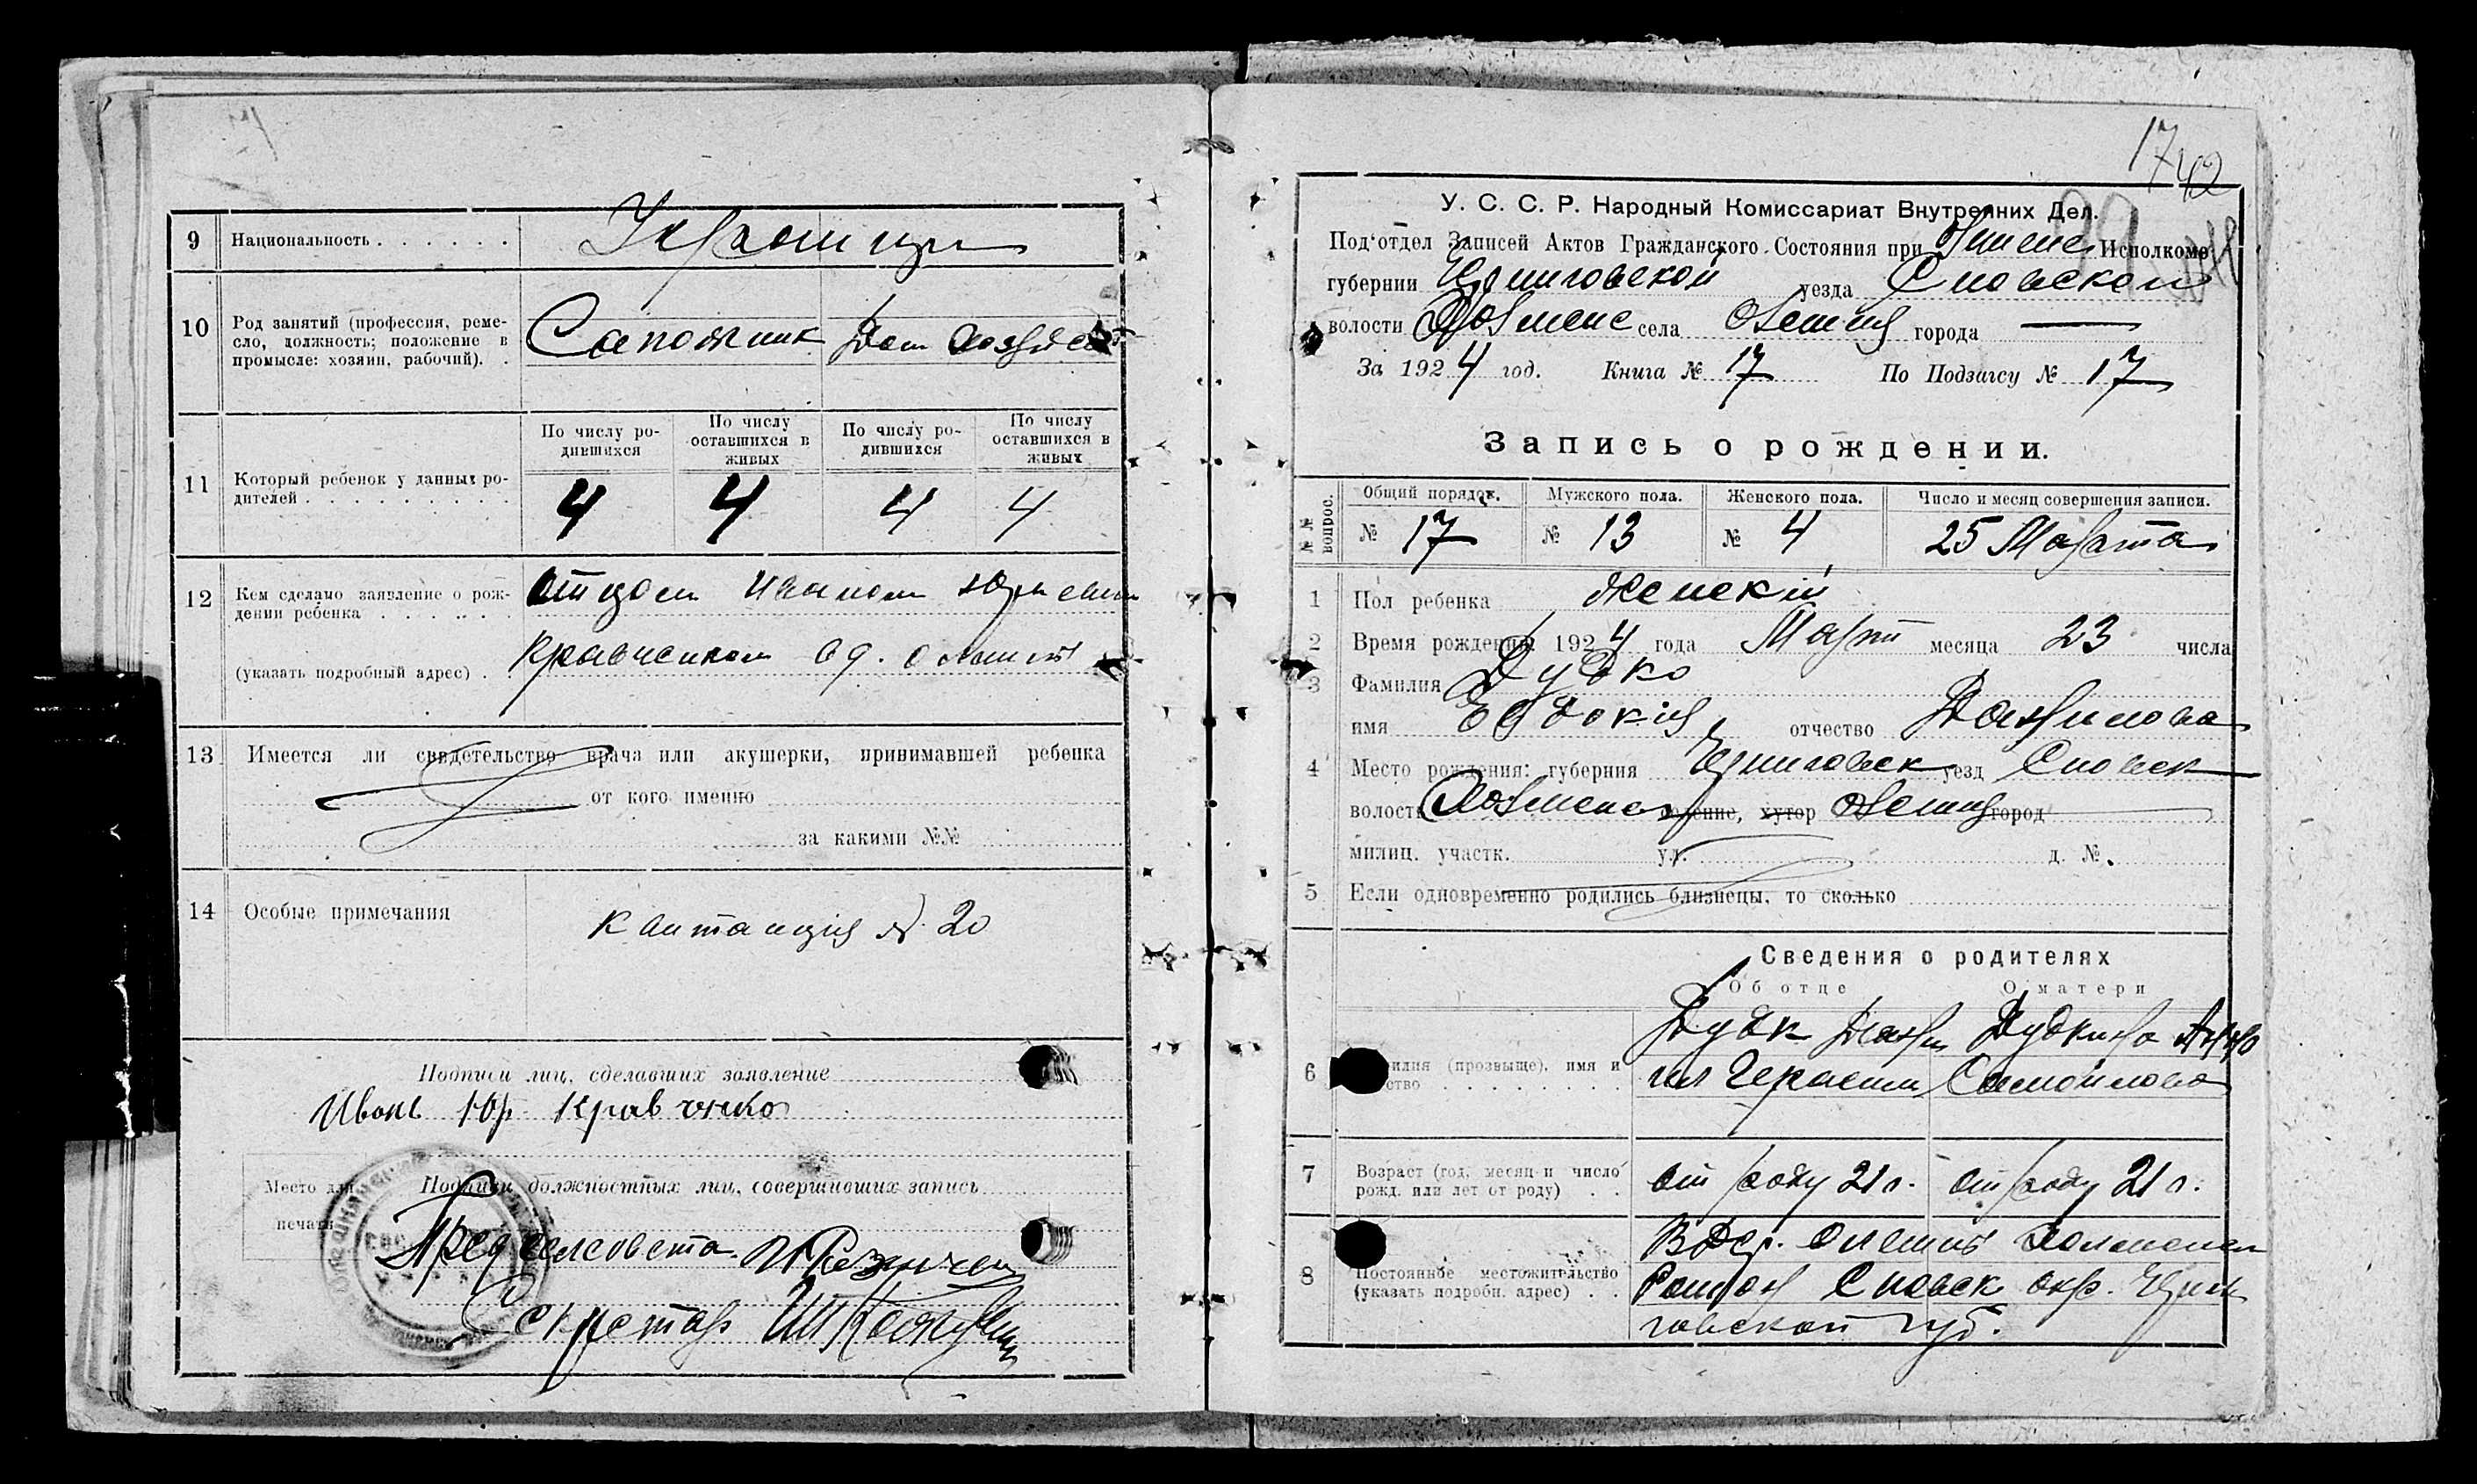 9 Национальность Украинцы
10 Род занятий (профессия, реме-
сло, должность; положение в
промысле: хозяин, рабочий).
Сапожник Дом хозяйст
По числу ро-
дившихся
По числу
оставшихся в
живых
По числу ро-
дившихся
По числу
оставшихся в
живых
11 Который ребенок у данных ро-
дителей
4 4 4 4
12 Кем сделано заявление о рож-
дении ребенка
Отцом Иваном Юрьевым
(указать подробный адрес)
Кравченком
13 Имеется ли свидетельство врача или акушерки, принимавшей ребенка
от кого именно
за какими №№
14 Особые примечания
Квитанция № 20
Подписи лиц, сделавших заявление
Иванъ Юр Кравченко
Место для
печати
Подписи должностных лиц, совершивших запись
Пред сельсовета
Секретар
17
42
У. С. С. Р. Народный Комиссариат Внутренних Дел.
Под'отдел Записей Актов Гражданского Состояния при Исполкоме
губернии Черниговской уезда Сновском
волости Холменс села города
За 1924 год. Книга № 17 По Подзагсу № 17
Запись о рождении.
№№ вопрос.
Общий порядок. Мужского пола. Женского пола. Число и месяц совершения записи.
№ 17 № 13 № 4 25 Марта
1 Пол ребенка Женскій
2 Время рождения: 1924 года Март месяца 23 числа
3 Фамилия Дудко
имя Евдокия отчество Данилова
4 Место рождения: губерния Черниговск уезд Сновск
волость Холменс селение, хутор город
милиц. участк. ул. д. №.
5 Если одновременно родились близнецы, то сколько
Сведения о родителях
Об отце О матери
6 илия (прозвыще), имя и
ство
Дудк Дани
ил Герасим
Дудкина
Самойлова
7 Возраст (год, месяц и число
рожд. или лет от роду)
От роду 21 г. От роду 21 г.
8 Постоянное местожительство
(указать подробн. адрес)
В Дер. Олешня Холменск
Район Сновск окр. Черни
говской губ.